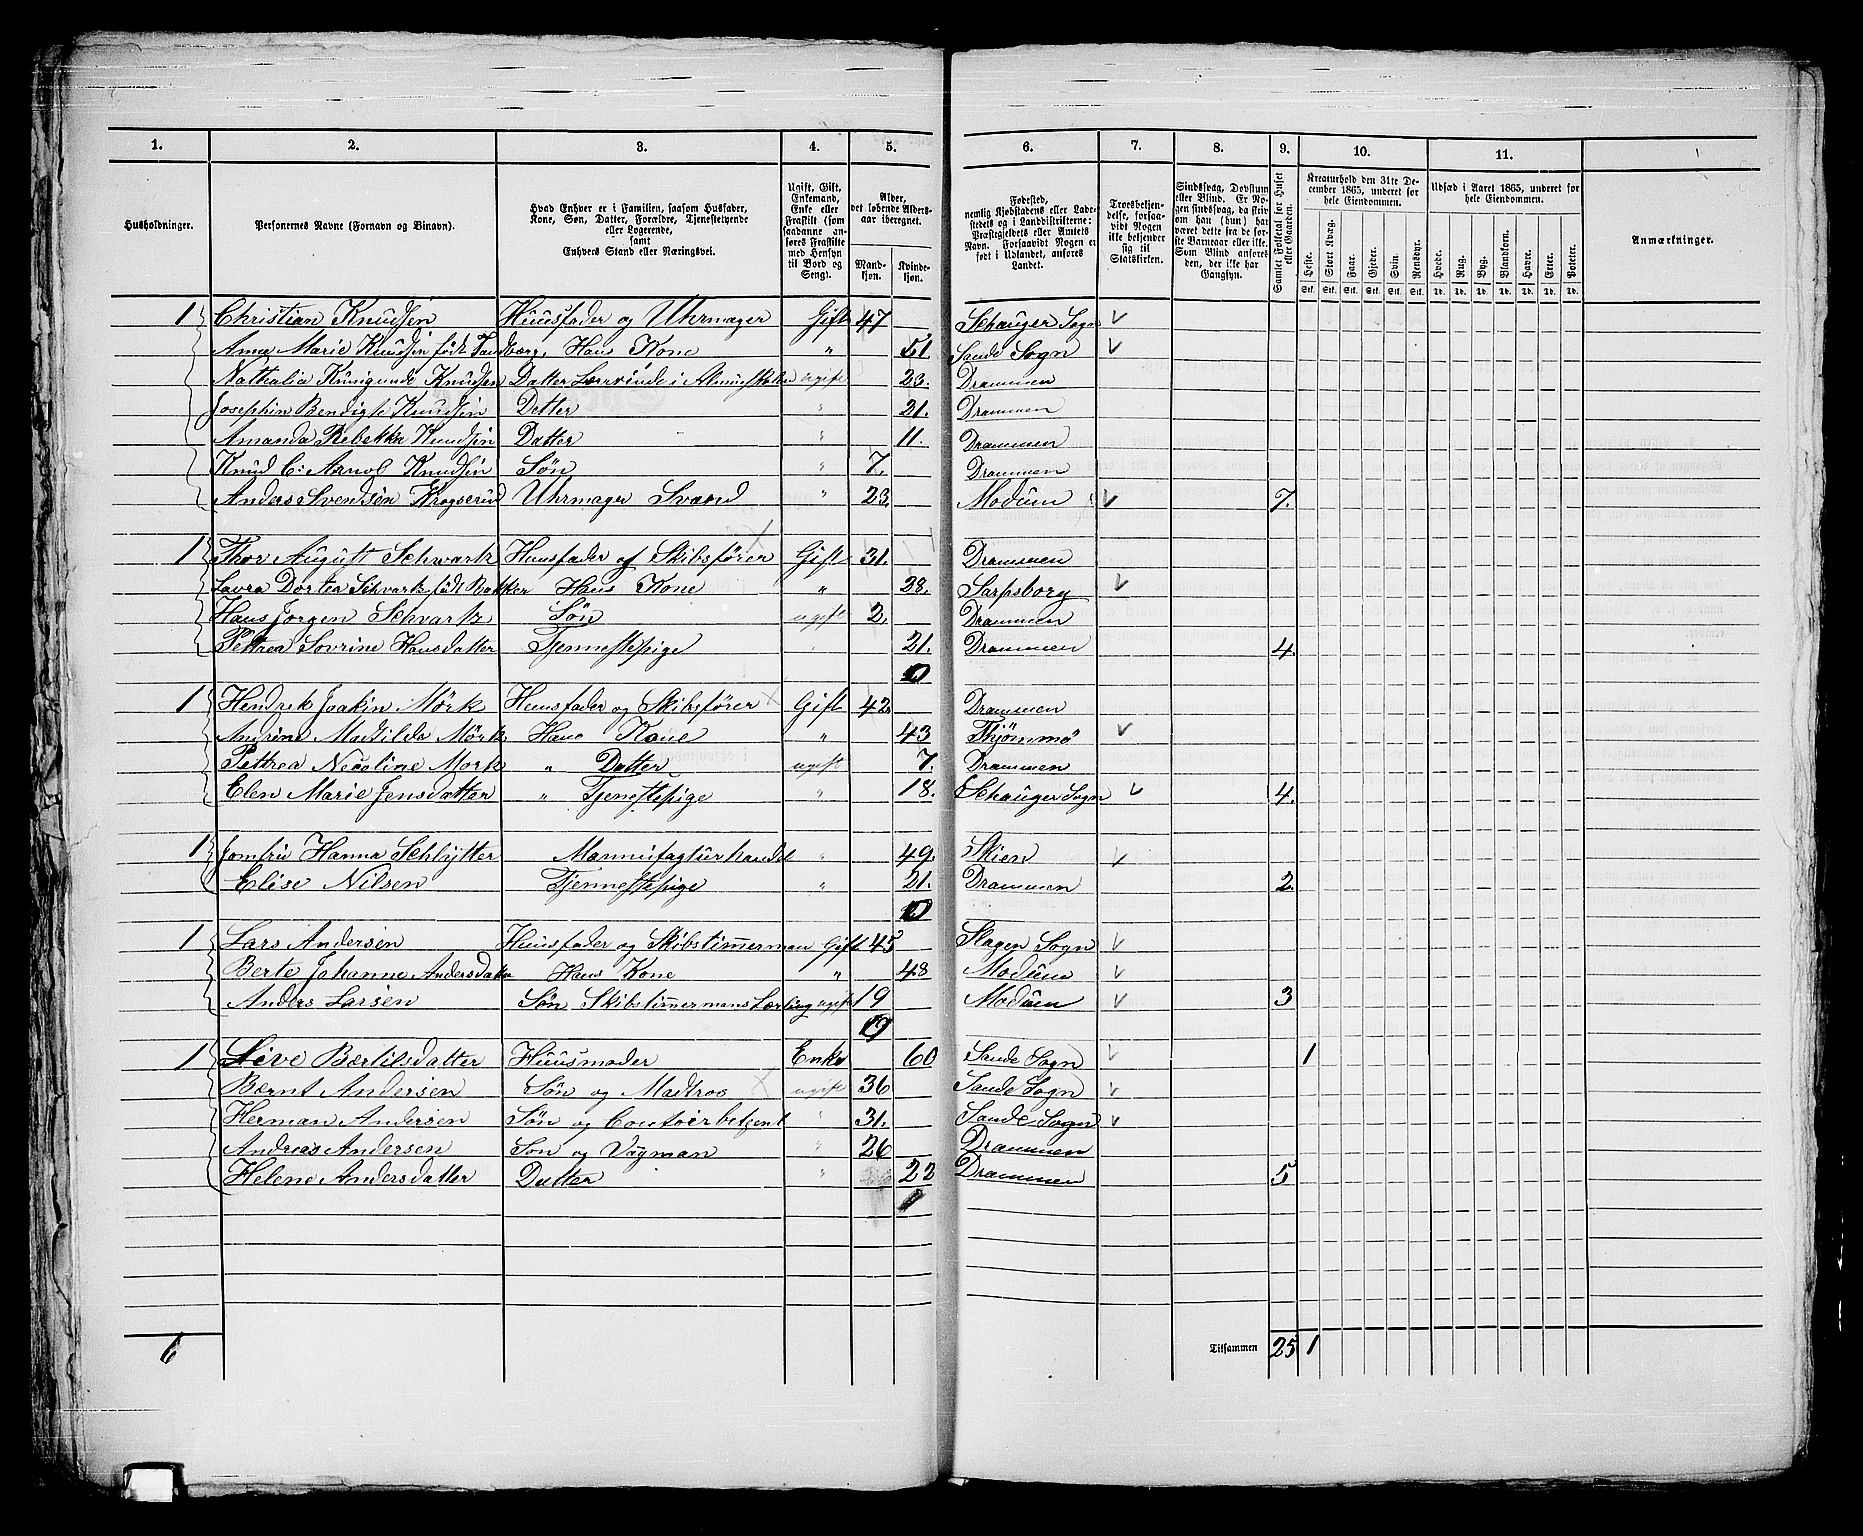 1. 2. 3. 4. 5. 6. 7. 8. 9. 10. 11.
Husholdninger.
Personernes Navne (Fornavn og Binavn).
Hvad Enhver er i Familien, saasom Husfader,
Kone, Søn, Datter, Forældre, Tjenestetyende
eller Logerende,
samt
Enhvers Stand eller Næringsvei.
Ugift, Gift,
Enkemand,
Enke eller
Fraskilt (som
saadanne an-
føres Fraskilte
med Hensyn
til Bord og
Seng).
Alder,
det løbende Alders-
aar iberegnet.
Mand-
kjøn.
Kvinde-
kjøn.
Fødested,
nemlig Kjøbstadens eller Lade-
stedets og i Landdistrikterne:
Præstegjeldets eller Amtets
Navn. Forsaavidt Nogen er
født i Udlandet, anføres
Landet.
Troesbekjen-
delse, forsaa-
vidt Nogen
ikke bekjender
sig til
Statskirken.
Sindssvag, Døvstum
eller Blind. Er No-
gen sindssvag, da skriv
om han (hun) har
været dette fra de før-
ste Barneaar eller ikke.
Som Blind ansføres
den, der ikke har
Gangsyn.
Samlet Folketal for Huset
eller Gaarden.
Kreaturhold den 31te De-
cember 1865, underet for
hele Eiendommen.
Heste. Stort Kvæg. Faar. Gjeder. Svin. Rensdyr.
Stk. Stk. Stk. Stk. Stk. Stk.
Udsæd i Aaret 1865, underet for
hele Eiendommen.
Hvede. Rug. Byg. Blandkorn. Havre. Erter. Poteter.
Td. Td. Td. Td. Td. Td. Td.
Anmærkninger.
1 Christian Knudsen Huusfader og Uhrmager Gift 47 Schauger Sogn
Ane Marie Knudsen født Tandberg, Hans Kone " 51. Sande Sogn
Nathalia Kunigunde Knudsen Datter Lærerinde i Almueskolen ugift 23. Drammen
Josephin Bendigte Knudsen Datter " 21. Drammen
Amanda Rebekka Knudsen Datter " 11. Drammen
Knud C: Aarvol Knudsen Søn " 7. Drammen
Anders Svendsen Krogserud Uhrmager Svænd " 23. Modum 7.
1 Thor August Schwartz Huusfader og Skibsfører Gift 31. Drammen
Lavra Dortea Schvartz født Bakker Hans Kone " 28. Sarpsborg
Hans Jørgen Schvartz Søn ugift 2. Drammen
Pettrea Sovrine Hansdatter Tjennestepige 21. Drammen 4.
1 Hendrek Joakin Mörk Huusfader og Skibsfører Gift 42. Drammen
Andrine Matilda Mörk Hans Kone " 43 Thjømmö
Pettrea Nicoline Mork " Datter ugift 7. Drammen
Elen Marie Jensdatter " Tjenestepige " 18. Schauger Sogn 4.
1 Jomfru Hanna Schlytter Mannufagturhandel " 49. Skien
Elise Nilsen Tjennestepige " 21. Drammen 2.
1 Lars Andersen Huusfader og Skibstimmerman Gift 45 Slagen Sogn
Berte Johanne Andersdatter Hans Kone " 48 Modum
Anders Larsen Søn Skibstimmermans Lærling ugift 19 Modum 3
1 Live Bærtilsdatter Huusmoder Enke 60 Sande Sogn 1
Bærnt Andersen Søn og Madtros ugift 36 Sande Sogn
Herman Andersen Søn og Contoirbetjent " 31. Sande Sogn
Andreas Andersen Søn og Vagman " 26 Drammen
Helene Andersdatter Datter " 22 Drammen 5
6 Tilsammen 25 1